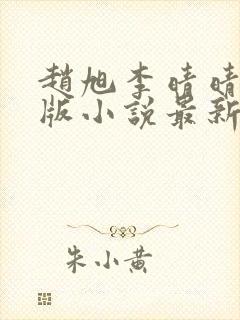 趙旭李晴晴
版小說最新
朱小黄